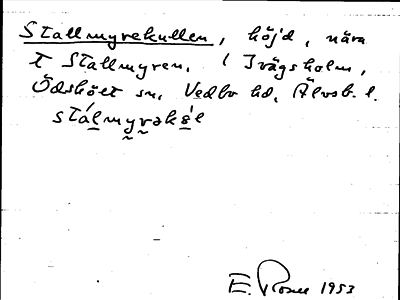 Stallmyrekullen, höjd, nära
t Stallmyren, i Tvägsholm,
Ödskölt sn, Vedbo hd, Älvsb. l.
stálmyrək
E. Rosell 1953